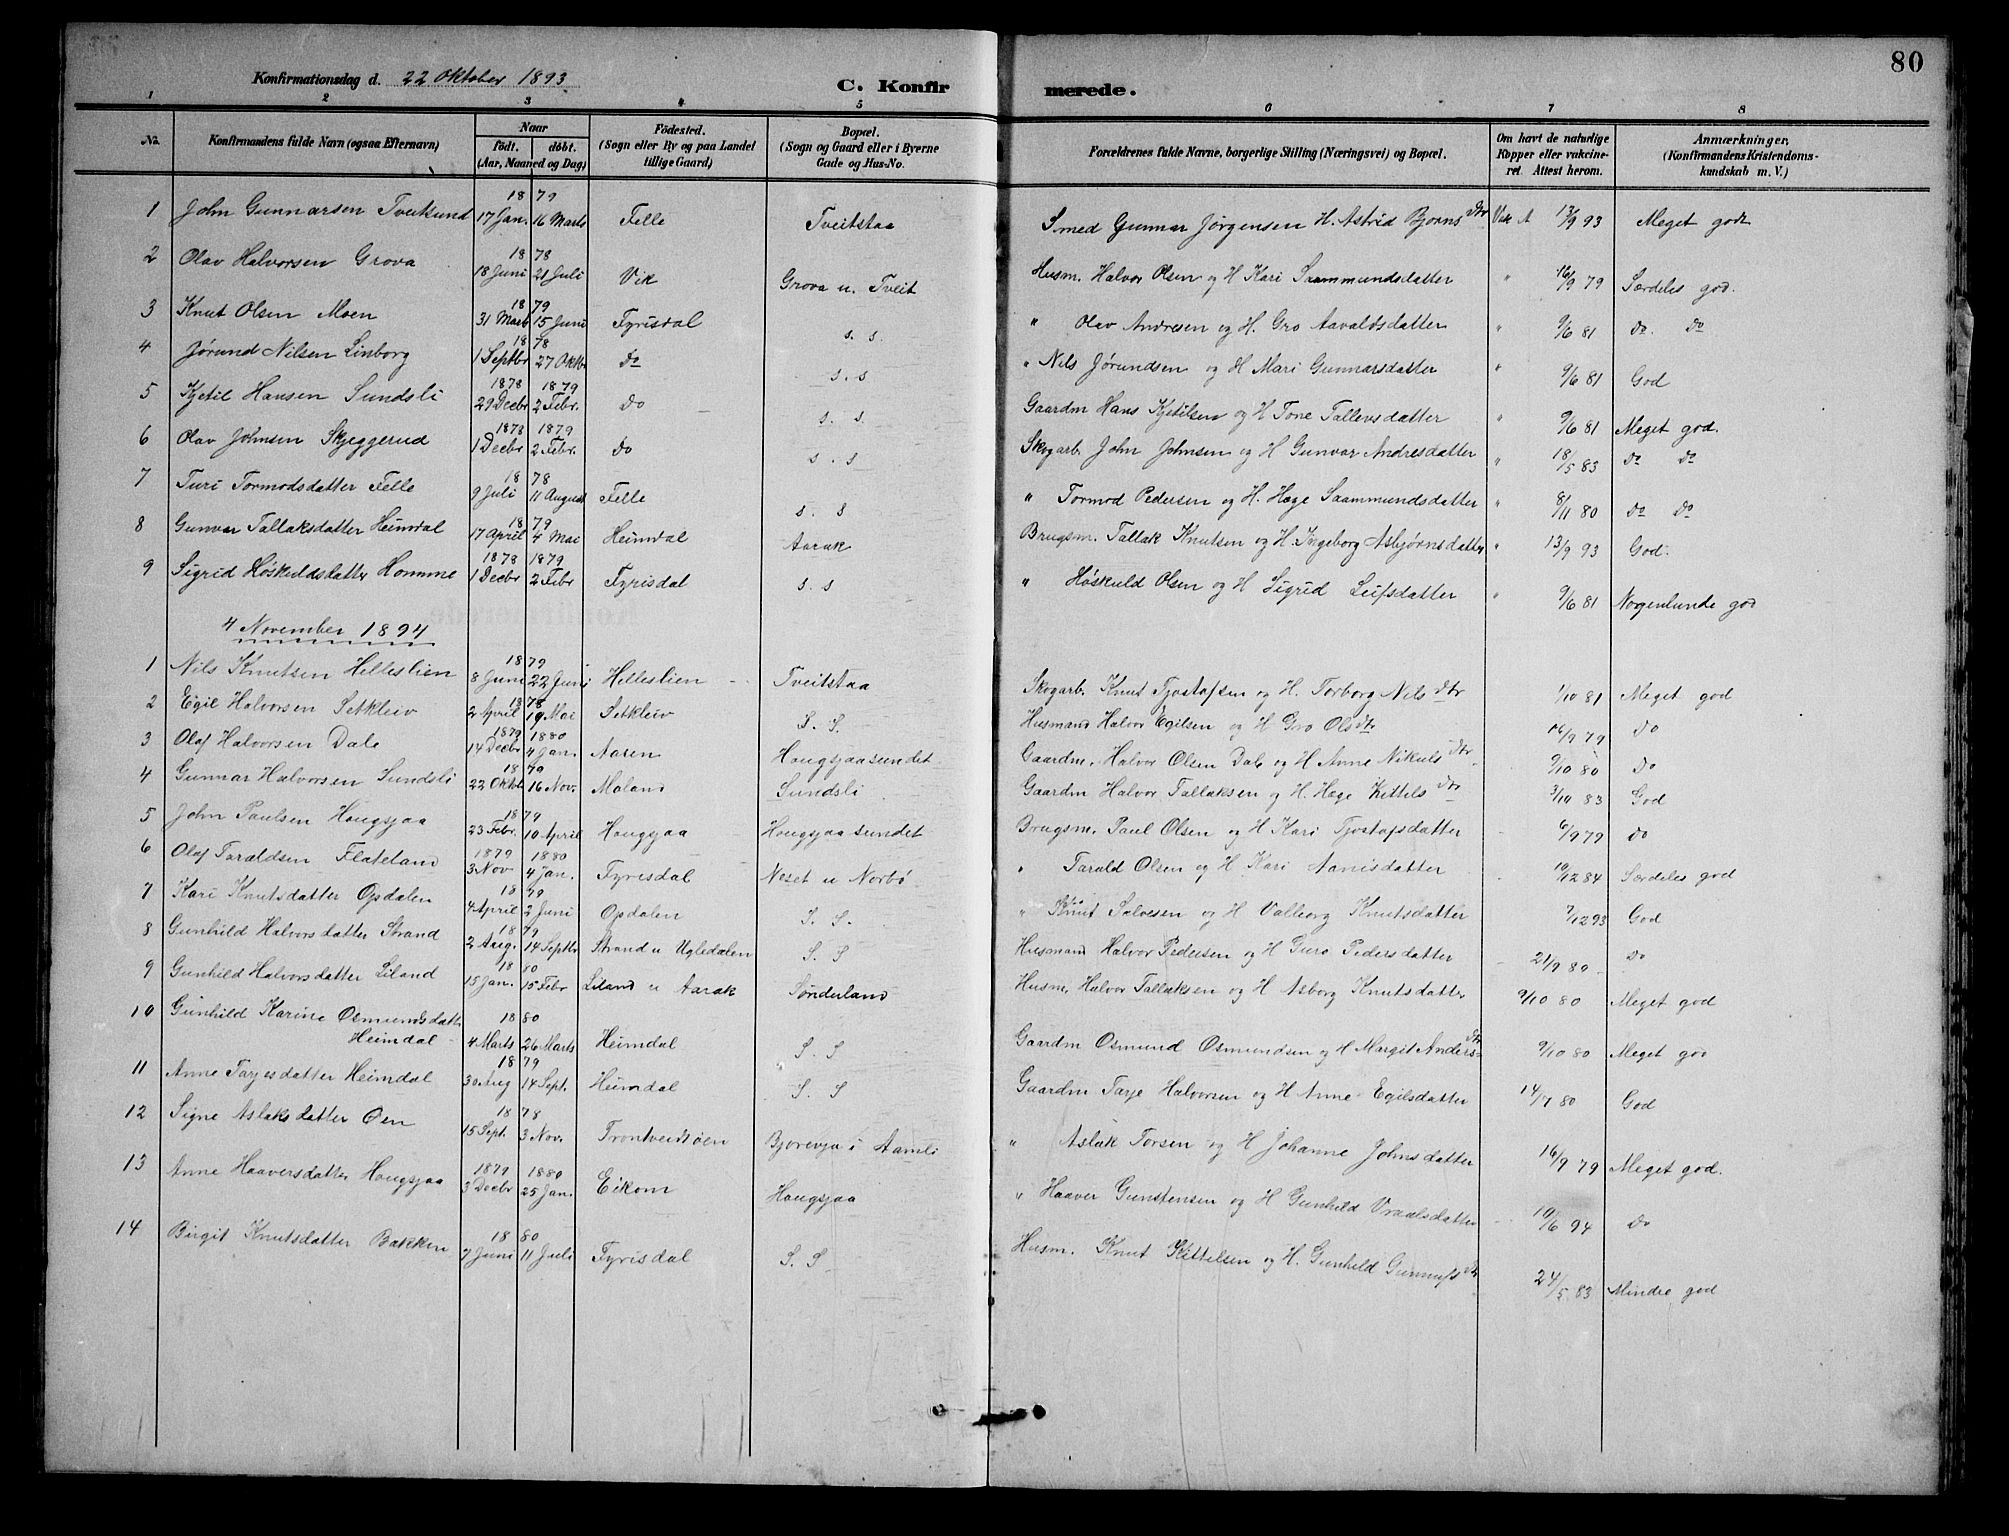 80
Konfirmationsdag d. 22 Oktober 1893
C. Konfirmerede.
1 2 3 4 5 6 7 8
No. Konfirmandens fulde Navn (ogsaa Efternavn) Naar födt. döbt. (Aar, Maaned og Dag) Födested. (Sogn eller By og paa Landet tillige Gaard) Bopæl. (Sogn og Gaard eller i Byerne Gade og Hus-No. Forældrenes fulde Navne, borgerlige Stilling (Næringsvei) og Bopæl. Om havt de naturlige Kopper eller vakcineret. Attest herom. Anmærkninger, (Konfirmandens Kristendomskundskab m. V.)
1 John Gunnarsen Tveitsund 1879 17 Jan. 16 Marts Felle Tveitstaa Smed Gunnar Jørgensen H. Astrid Bjorns dtr Vak A 13/9 93 Meget godt
2 Olav Halvorsen Grova 1878 18 Juni 21 Juli Vik Grova u. Tveit Husm. Halvor Olsen og H Kari Saammundsdatter " 16/9 79 Særdeles god.
3 Knut Olsen Moen 1879 31 Marts 15 Juni Fyrisdal s. s. " Olav Andresen og H. Gro Aavaldsdatter " 9/6 81 do. do
4 Jørund Nilsen Linborg 1878 1 Septbr 27 Oktbr do s. s " Nils Jørundsen og H Mari Gunnarsdatter " 9/6 81 God
5 Kjetil Hansen Sundsli 1878 29 Decbr 1879 2 Febr. do s. s Gaardm Hans Kjetilsen og H Tone Tallevsdatter " 9/6 81 Meget god.
6 Olav Johnsen Skjeggerud 1878 1 Decbr 1879 2 Febr. do s. s Skogarb. John Johnsen og H Gunvor Andresdatter " 18/5 83 do do
7 Turi Tormodsdatter Felle 1878 9 Juli 11 August Felle s. s " Tormod Pedersen og H. Hæge Saammundsdatter " 8/11 80 do do
8 Gunvor Tallaksdatter Heimdal 1879 17 April 4 Mai Heimdal Aarak Brugsm. Tallak Knutsen og H. Ingeborg Asbjørnsdatter " 13/9 93 God.
9 Sigrid Høskuldsdatter Homme 1878 1 Decbr 1879 2 Febr Fyrisdal s. s " Høskuld Olsen og H Sigrid Leifsdatter " 9/6 81 Nogenlunde god
4 November 1894
1 Nils Knutsen Hilleslien 1879 8 Juni 22 Juni Hilleslien Tveitstaa Skogarb. Knut Tjostofsen og H. Torborg Nils dtr 1/10 81 Meget god
2 Egil Halvorsen Setkleiv 1878 2 April 19 Mai Setkleiv S. S. Husmand Halvor Egilsen og H Gro Olsdtr 16/9 79 do
3 Olaf Halvorsen Dale 1879 14 Decbr 1880 4 Jan. Aaren Hougsjaasundet Gaardm. Halvor Olsen Dale og H Anne Nikuls dtr 9/10 80 do
4 Gunnar Halvorsen Sundsli 1879 22 Oktbr 16 Nov. Moland Sundsli Gaardm Halvor Tallaksen og H. Hæge Kittils dtr 3/10 83 God
5 John Paulsen Hougsjaa 1879 23 Febr. 10 April Hougsjaa Hougsjaasundet Brugsm. Paul Olsen og H Kari Tjostofsdatter 6/9 79 do
6 Olaf Taraldsen Flateland 1879 3 Nov 1880 4 Jan. Fyrisdal Neset u Norbø " Tarald Olsen og H Kari Aanisdatter 10/12 84 Særdeles god
7 Kari Knutsdatter Opdalen 1879 4 April 2 Juni Opdalen S. S. " Knut Salvesen og H Valborg Knutsdatter 7/12 93 God
8 Gunhild Halvorsdatter Strand 1879 2 Aug. 14 Septbr Strand u Ugledalen S. S Husmand Halvor Pedersen og H Guro Pedersdatter 21/9 80 do
9 Gunhild Halvorsdatter Liland 1880 15 Jan. 15 Febr Liland u Aarak Sønderland Husm. Halvor Tallaksen og H Asborg Knutsdatter 9/10 80 Meget god
10 Gunhild Karine Osmundsdatter Heimdal 1880 4 Marts 26 Marts Heimdal S. S Gaardm Osmund Osmundsen og H Margit Anders dtr 9/10 80 Meget god
11 Anne Tarjesdatter Heimdal 1879 30 Aug 14 Sept. Heimdal S. S Gaardm Tarje Halvorsen og H Anne Egilsdatter 14/9 80 God
12 Signe Aslaksdatter Øen 1878 15 Sept. 3 Nov. Trontveidtøen Bjorevja i Aamli " Aslak Torsen og H Johanne Johnsdatter 16/9 79 Meget god.
13 Anne Haaversdatter Hougsjaa 1879 3 Decbr 1880 25 Jan. Eikom Hougsjaa " Haaver Gunstensen og H Gunhild Vraalsdatter 10/6 94 do
14 Birgit Knutsdatter Bakken 1880 7 Juni 11 Juli Fyrisdal S. S Husm. Knut Kittelsen og H. Gunhild Gunnufs dtr 24/5 83 Mindre god